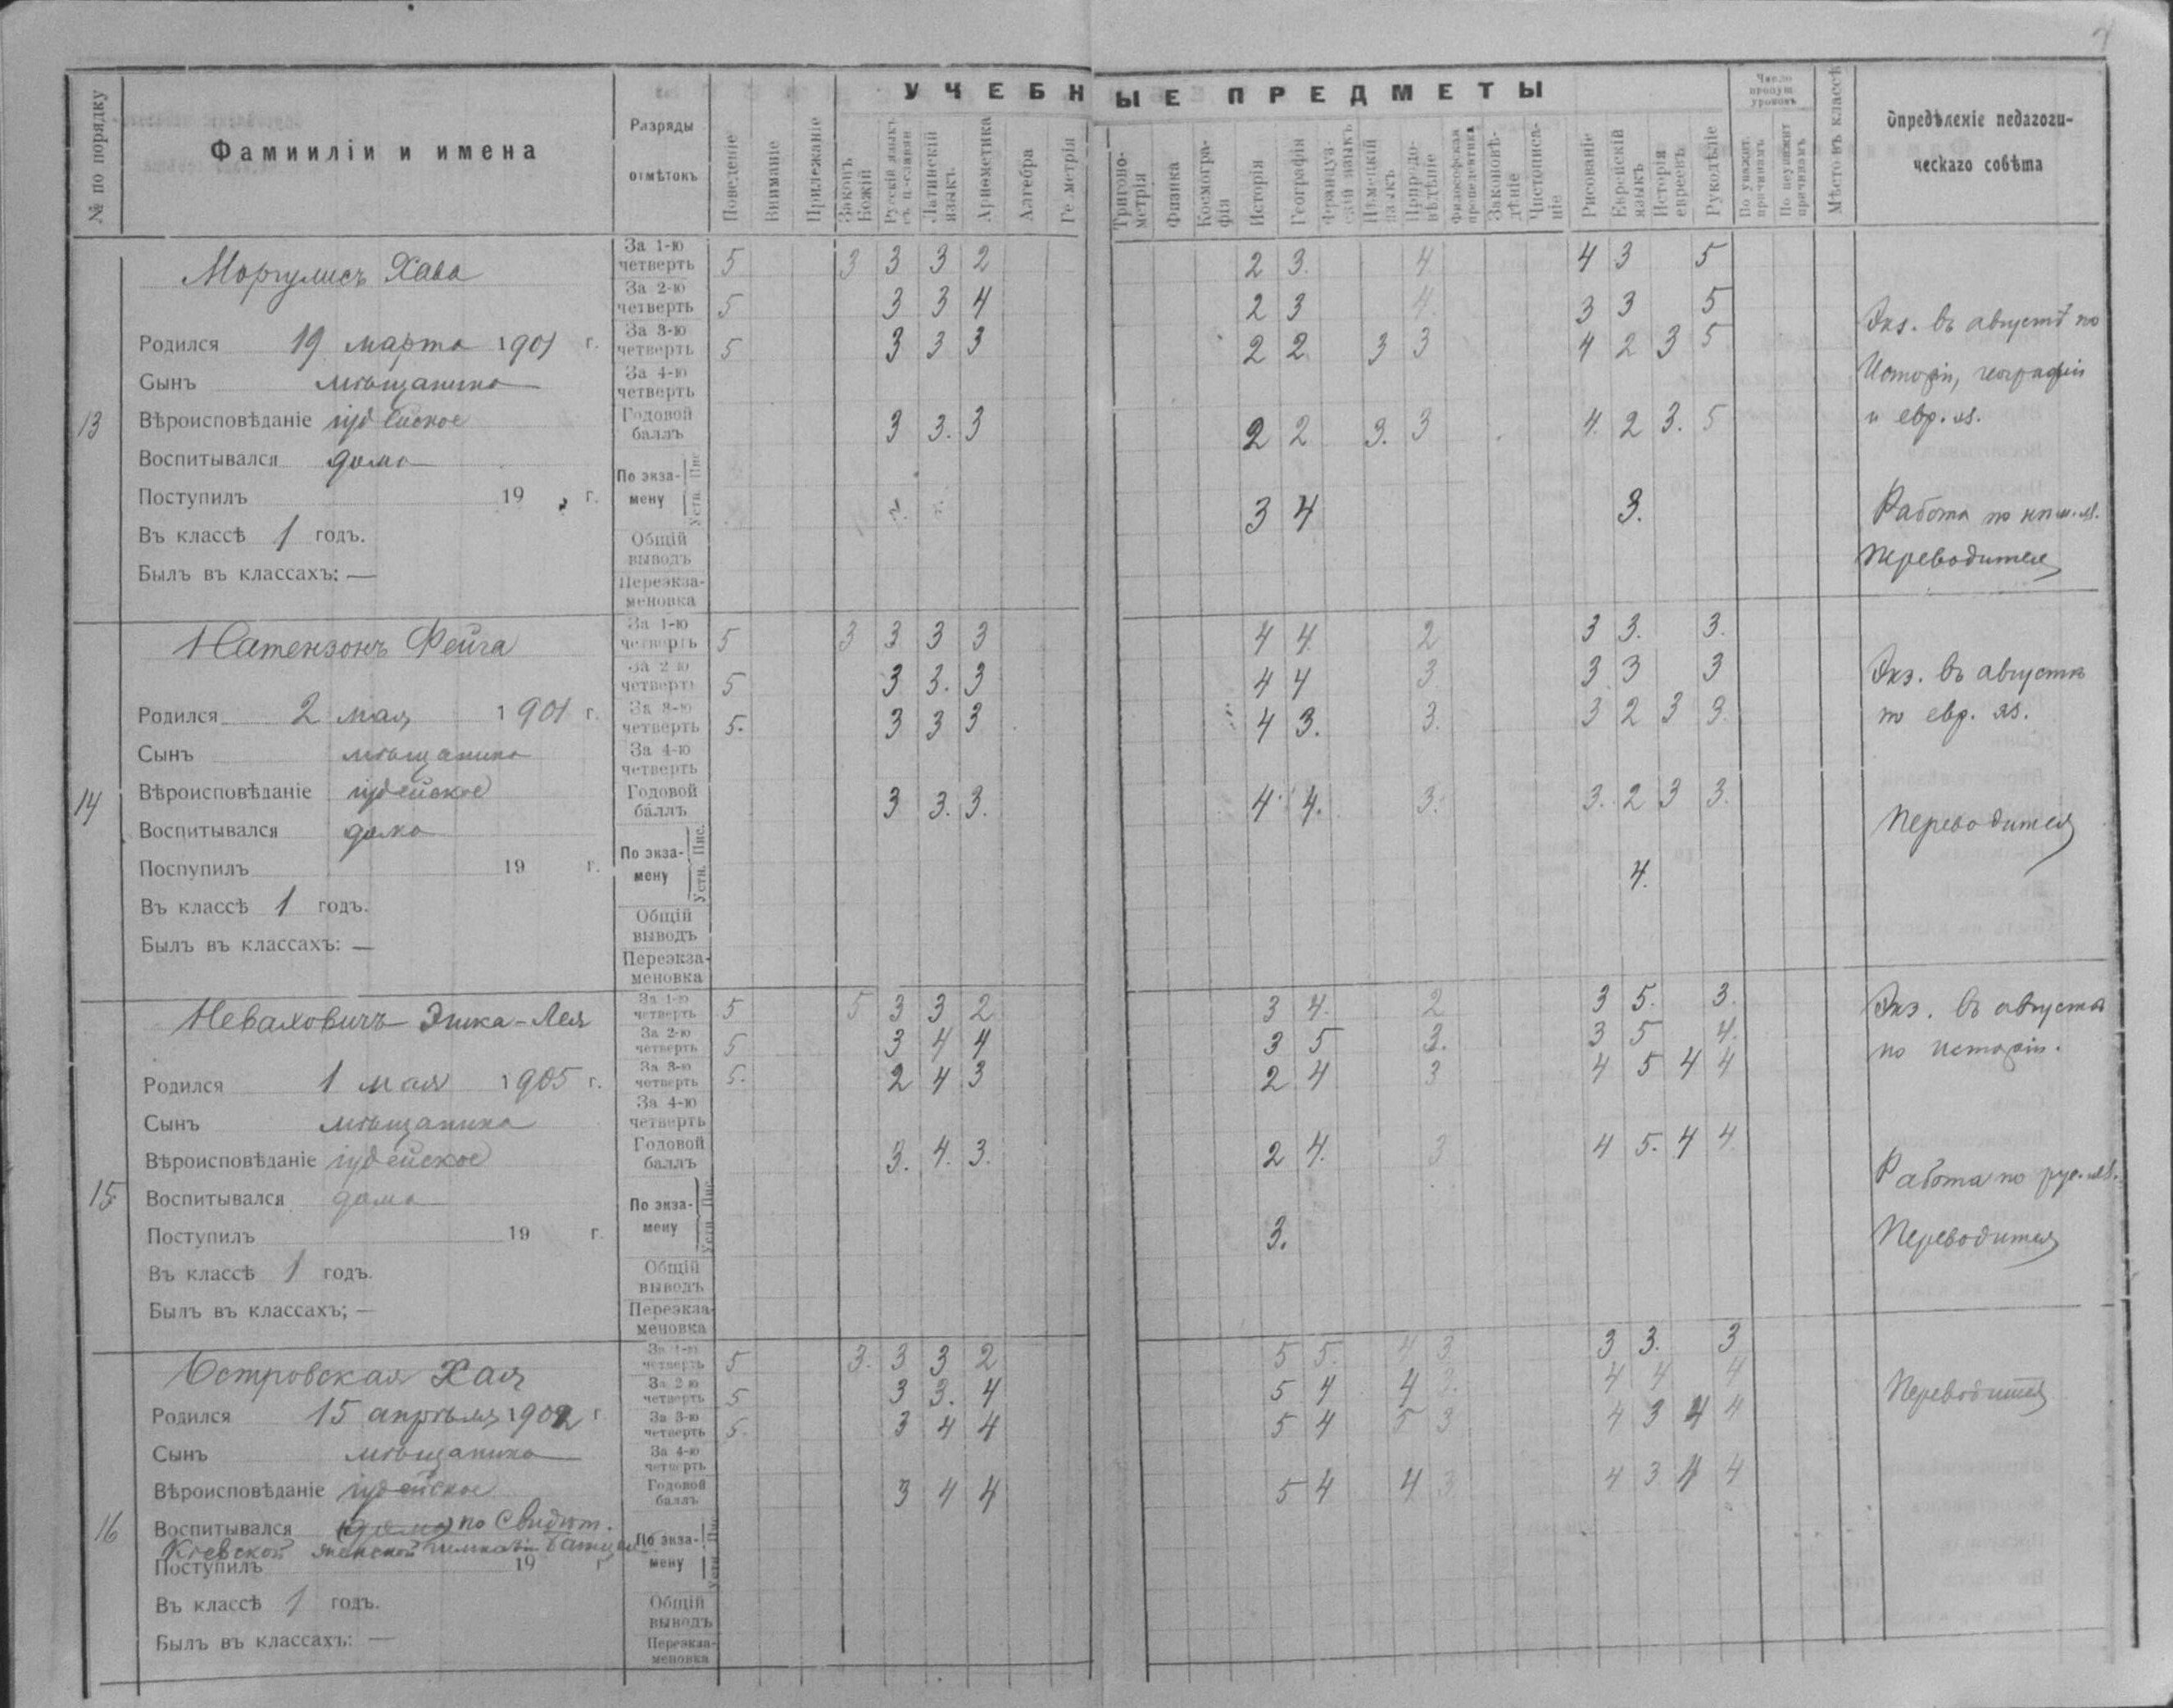 УЧЕБНЫЕ ПРЕДМЕТЫ
№ по порядку
Фамииліи и имена
Разряды
отмѣтокъ
Поведеніе
Вниманіе
Прилежаніе
Законъ Божій
Русскій языкъ
Латинскій языкъ
Ариѳметика
Алгебра
Геометрія
Тригоно-
метрія
Физика
Космогра-
фія
Исторія
Географія
Француз-
скій языкъ
Нѣмецкій языкъ
Природо-
вѣдѣніе
Философская пропедевтика
Законовѣ-
дѣніе
Чистописа-
ніе
Рисованіе
Еврейскій языкъ
Исторія евреевъ
Рукодѣліе
Число
пропущ.
уроковъ
По уважит. причинамъ
По неуважит причинамъ
Мѣсто въ классѣ
Опредѣленіе педагоги-
ческаго совѣта
13
Моргулисъ Хава
Родился 19 марта 1901 г.
Сынъ мѣщанина
Вѣроисповѣданіе іудейское
Воспитывался дома
Поступилъ 19 г.
Въ классѣ 1 годъ.
Былъ въ классахъ: —
За 1-ю четверть 5 3 3 3 2 2 3. 4 4 3 5
За 2-ю четверть 5 3 3 4 2 3 4. 3 3 5
За 3-ю четверть 5 3 3 3 2 2 3 3 4 2 3 5
За 4-ю четверть
Годовой баллъ 3 3. 3 2 2 3. 3 4. 2 3. 5
По экза-
мену Устн. Пис. 3 4 3.
Общій выводъ
Переэкза-
меновка
Экз. въ августѣ по
Исторіи, географіи
и евр. яз.
Работа по нѣм. яз.
Переводится
14
Натензонъ Фейга
Родился 2 мая 1901 г.
Сынъ мѣщанина
Вѣроисповѣданіе іудейское
Воспитывался дома
Поступилъ 19 г.
Въ классѣ 1 годъ.
Былъ въ классахъ: —
За 1-ю четверть 5 3 3 3 3 4 4. 2 3 3. 3.
За 2-ю четверть 5 3 3. 3 4 4 3 3 3 3
За 3-ю четверть 5. 3 3 3 4 3. 3. 3 2 3 3.
За 4-ю четверть
Годовой баллъ 3 3. 3. 4. 4. 3. 3. 2 3 3.
По экза-
мену Устн. Пис. 4.
Общій выводъ
Переэкза-
меновка
Экз. въ августѣ
по евр. яз.
Переводится
15
Неваховичъ Эшка-Лея
Родился 1 мая 1905 г.
Сынъ мѣщанина
Вѣроисповѣданіе іудейское
Воспитывался дома
Поступилъ 19 г.
Въ классѣ 1 годъ.
Былъ въ классахъ; —
За 1-ю четверть 5 5 3 3 2 3 4. 2 3 5. 3.
За 2-ю четверть 5 3 4 4 3 5 3. 3 5 4.
За 3-ю четверть 5. 2 4 3 2 4 3 4 5 4 4
За 4-ю четверть
Годовой баллъ 3. 4. 3. 2 4. 3 4 5. 4 4
По экза-
мену Устн. Пис. 3.
Общій выводъ
Переэкза-
меновка
Экз. въ августѣ
по исторіи.
Работа по рус. яз.
Переводится
16
Островская Хая
Родился 15 апрѣля 1902 г
Сынъ мѣщанина
Вѣроисповѣданіе іудейское
Воспитывался (дома) по Свидѣт.
Кіевской женской гимназіи
Поступилъ 19 г
Въ классѣ 1 годъ.
Былъ въ классахъ: —
За 1-ю четверть 5 3. 3 3 2 5 5. 4 3 3 3. 3
За 2-ю четверть 5 3 3. 4 5 4 4 3. 4 4 4
За 3-ю четверть 5. 3 4 4 5 4 5 3 4 3 4 4
За 4-ю четверть
Годовой баллъ 3 4 4 5 4 4 3 4 3 4 4
По экза-
мену Устн. Пис.
Общій выводъ
Переэкза-
меновка
Переводится